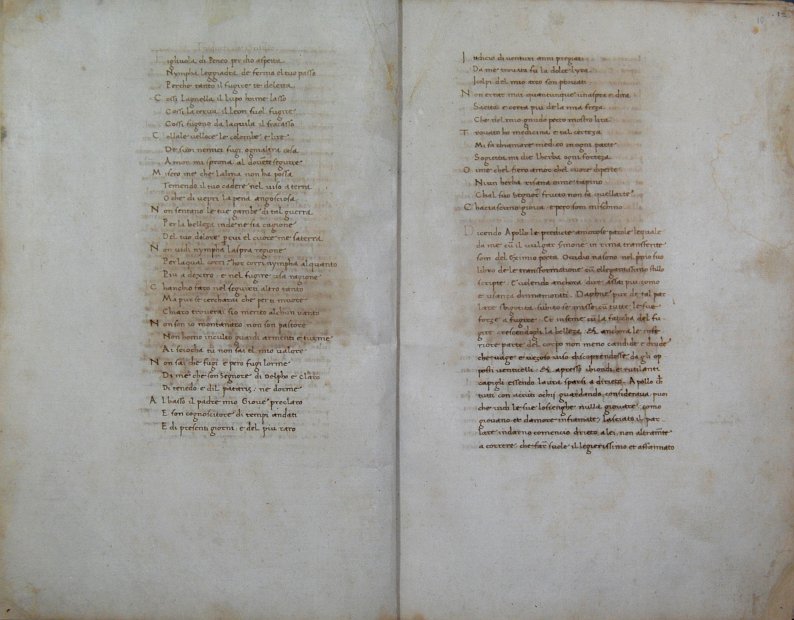 Figliuola di Peneo per dio aspetta
Nympha leggiadra, de ferma el tuo passo
Perche tanto il fugire te deletta
Cossi Lagnella il lupo horme lasso
Cossi la cerva il leon suol fugire
Cossi fugeno da laquila il fracasso
Collale velloce le colombe, e lire
De suoi nemici fugi ognialtra cosa
Amor mi sprona al dovette seguire
Misero me che Lalma non ha possa
Temendo il tuo cadere nel viso a terra
O che di vepri la pena angosciosa
Non sentano le tue gambe di tal guerra
Per la bellezza in de ne sia cagione
Del tuo dolore per cui el cuore me saterra
Non vidi nympha laspra regione
Per laqual corri, hor corri nympha alquanto
Piu a dextro e nel fugire usa ragione
Chancho faro nel seguirti altro tanto
Ma pur se cercharai che per ti muore
Chiaro troverai sio merito alchun vanto
Non son io montanaro non son pastore
Non homo inculto guardi armenti e turme
Ai sciocha tu non sai el mio valore
Non sai che fugi e pero fugi lorme
Di me che son Segnore di Delpho e Claro
Di tenedo e dil patara, ne dorme
Al basso il padre mio Giove preclaro
E son cognoscitore di tempi andati
E di presenti giorni, e del piu raro
10
Inditio di venturi anni pregiati
Da me trovata fu la dolce lyra
I colpi del mio arco son provati
Non errar mai quantunque una spera e dira
Saetta e certa piu de la mia freza
Che del mio giudo pecto mostro lira
Trovato ho medicina, e tal certeza
Mi fa chiamare medico in ogni parte
Sogietta mi die lherba ogni forteza
Oime chel fiero amor chel cuore diparte
Niuna herba risana oime tapino
Chal suo Segnor fructo non fa quellarte
Cha ciascuno giova, e pero son mischino
Dicendo Apollo le predicte amorose parole lequale
da me cum il vulgar simone in rima transferite
son del eximio poeta Ovidio nasone nel p̄rio suo
libro de le transformatione cum ellegantissimo stillo
scripte. E volendo anchora dire assai piu, como
e usança dinnamorati. Daphne pur de tal par
lare sbigotita subito se misse cum tutte le sue
forze a fugire. Et insieme cum la faticha del fu
gire crescendogli la bellezza, Et anchora le coste
riore parte del corpo non meno candide e dride
che vage e vezoso viso discoprendosse da gli op
posti venticelli. Et apresso i biondi e rutilanti
capegli essendo laura sparsi a drieto. Apollo cum
tutti con acuti ochij guardando considerava puoi
che vide le sue losenghe nulla giovare, como
giovano et damore infiamato, lasciato il par
lare indarno comencio drieto a lei, non altramente
a correre, che far suole il legierissimo et affamato